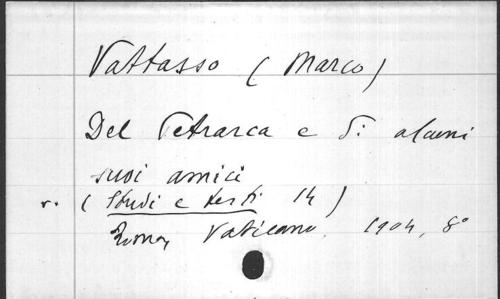 Vattasso (Marco)
Del Petrarca e di alcuni
suoi amici
v. (Studi e testi 14)
Roma, Vaticano, 1904, 8°